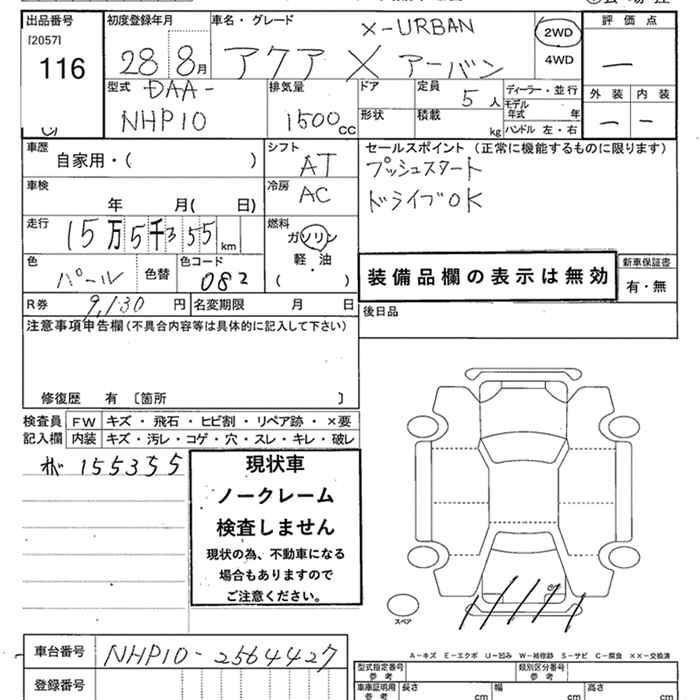 出品番号 初度登録年月 車名・グレード X-URBAN 2WD 評価点
[2057] 116 28 8月 アクア X アーバン 4WD —
型式 DAA- 排気量 ドア 定員 5人 ディーラー・並行 外装 内装
NHP10 1500cc 形状 積載 kg モデル年式 年 — —
ハンドル 左・右
車歴 自家用・( ) シフト AT セールスポイント(正常に機能するものに限ります)
プッシュスタート
車検 年 月( 日) 冷房 AC ドライブOK
走行 15万5千355km 燃料 ガソリン
軽・油
( ・ )
色 パール 色替 色コード 082 装備品欄の表示は無効 新車保証書
有・無
R券 9,130円 名変期限 月 日 後日品
注意事項申告欄(不具合内容等は具体的に記入して下さい)
修復歴 有 [箇所 ]
検査員 FW キズ・飛石・ヒビ割・リペア跡・×要
記入欄 内装 キズ・汚レ・コゲ・穴・スレ・キレ・破レ
155355
現状車
ノークレーム
検査しません
現状の為、不動車になる
場合もありますので
ご注意ください。
スペア
A-キズ E-エクボ U-凹み W-補修跡 S-サビ C-腐食 XX-交換済
車台番号 NHP10-2564427
登録番号
型式指定番号 参考 類別区分番号 参考
車庫証明用 参考 長さ cm 幅 cm 高さ cm